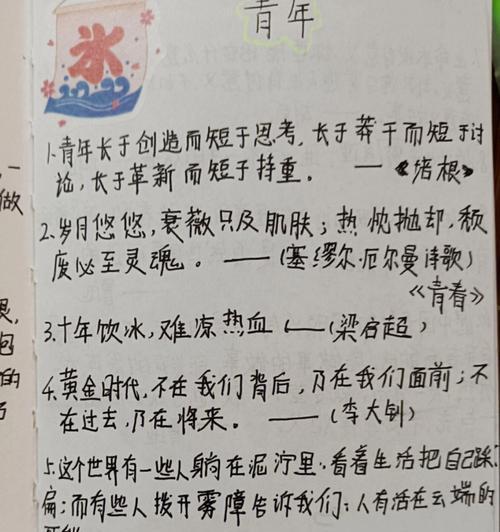 氷
青年
1.青年长于创造而短于思考,长于莽干而短于讨
论,长于革新而短于持重。 ——《培根》
2.岁月悠悠,衰薇只及肌肤;热忱抛却,颓
废必至灵魂。——(塞缪尔·厄尔曼诗歌)
《青春》
3.十年饮冰,难凉热血 ——(梁启超)
4.黄金时代,不在我们背后,乃在我们面前;不
在过去,乃在将来。——(李大钊)
5.这个世界有一些人躺在泥泞里,看着生活把自己踩
扁;而有些人拨开雾障告诉我们:人有活在云端的
做
的